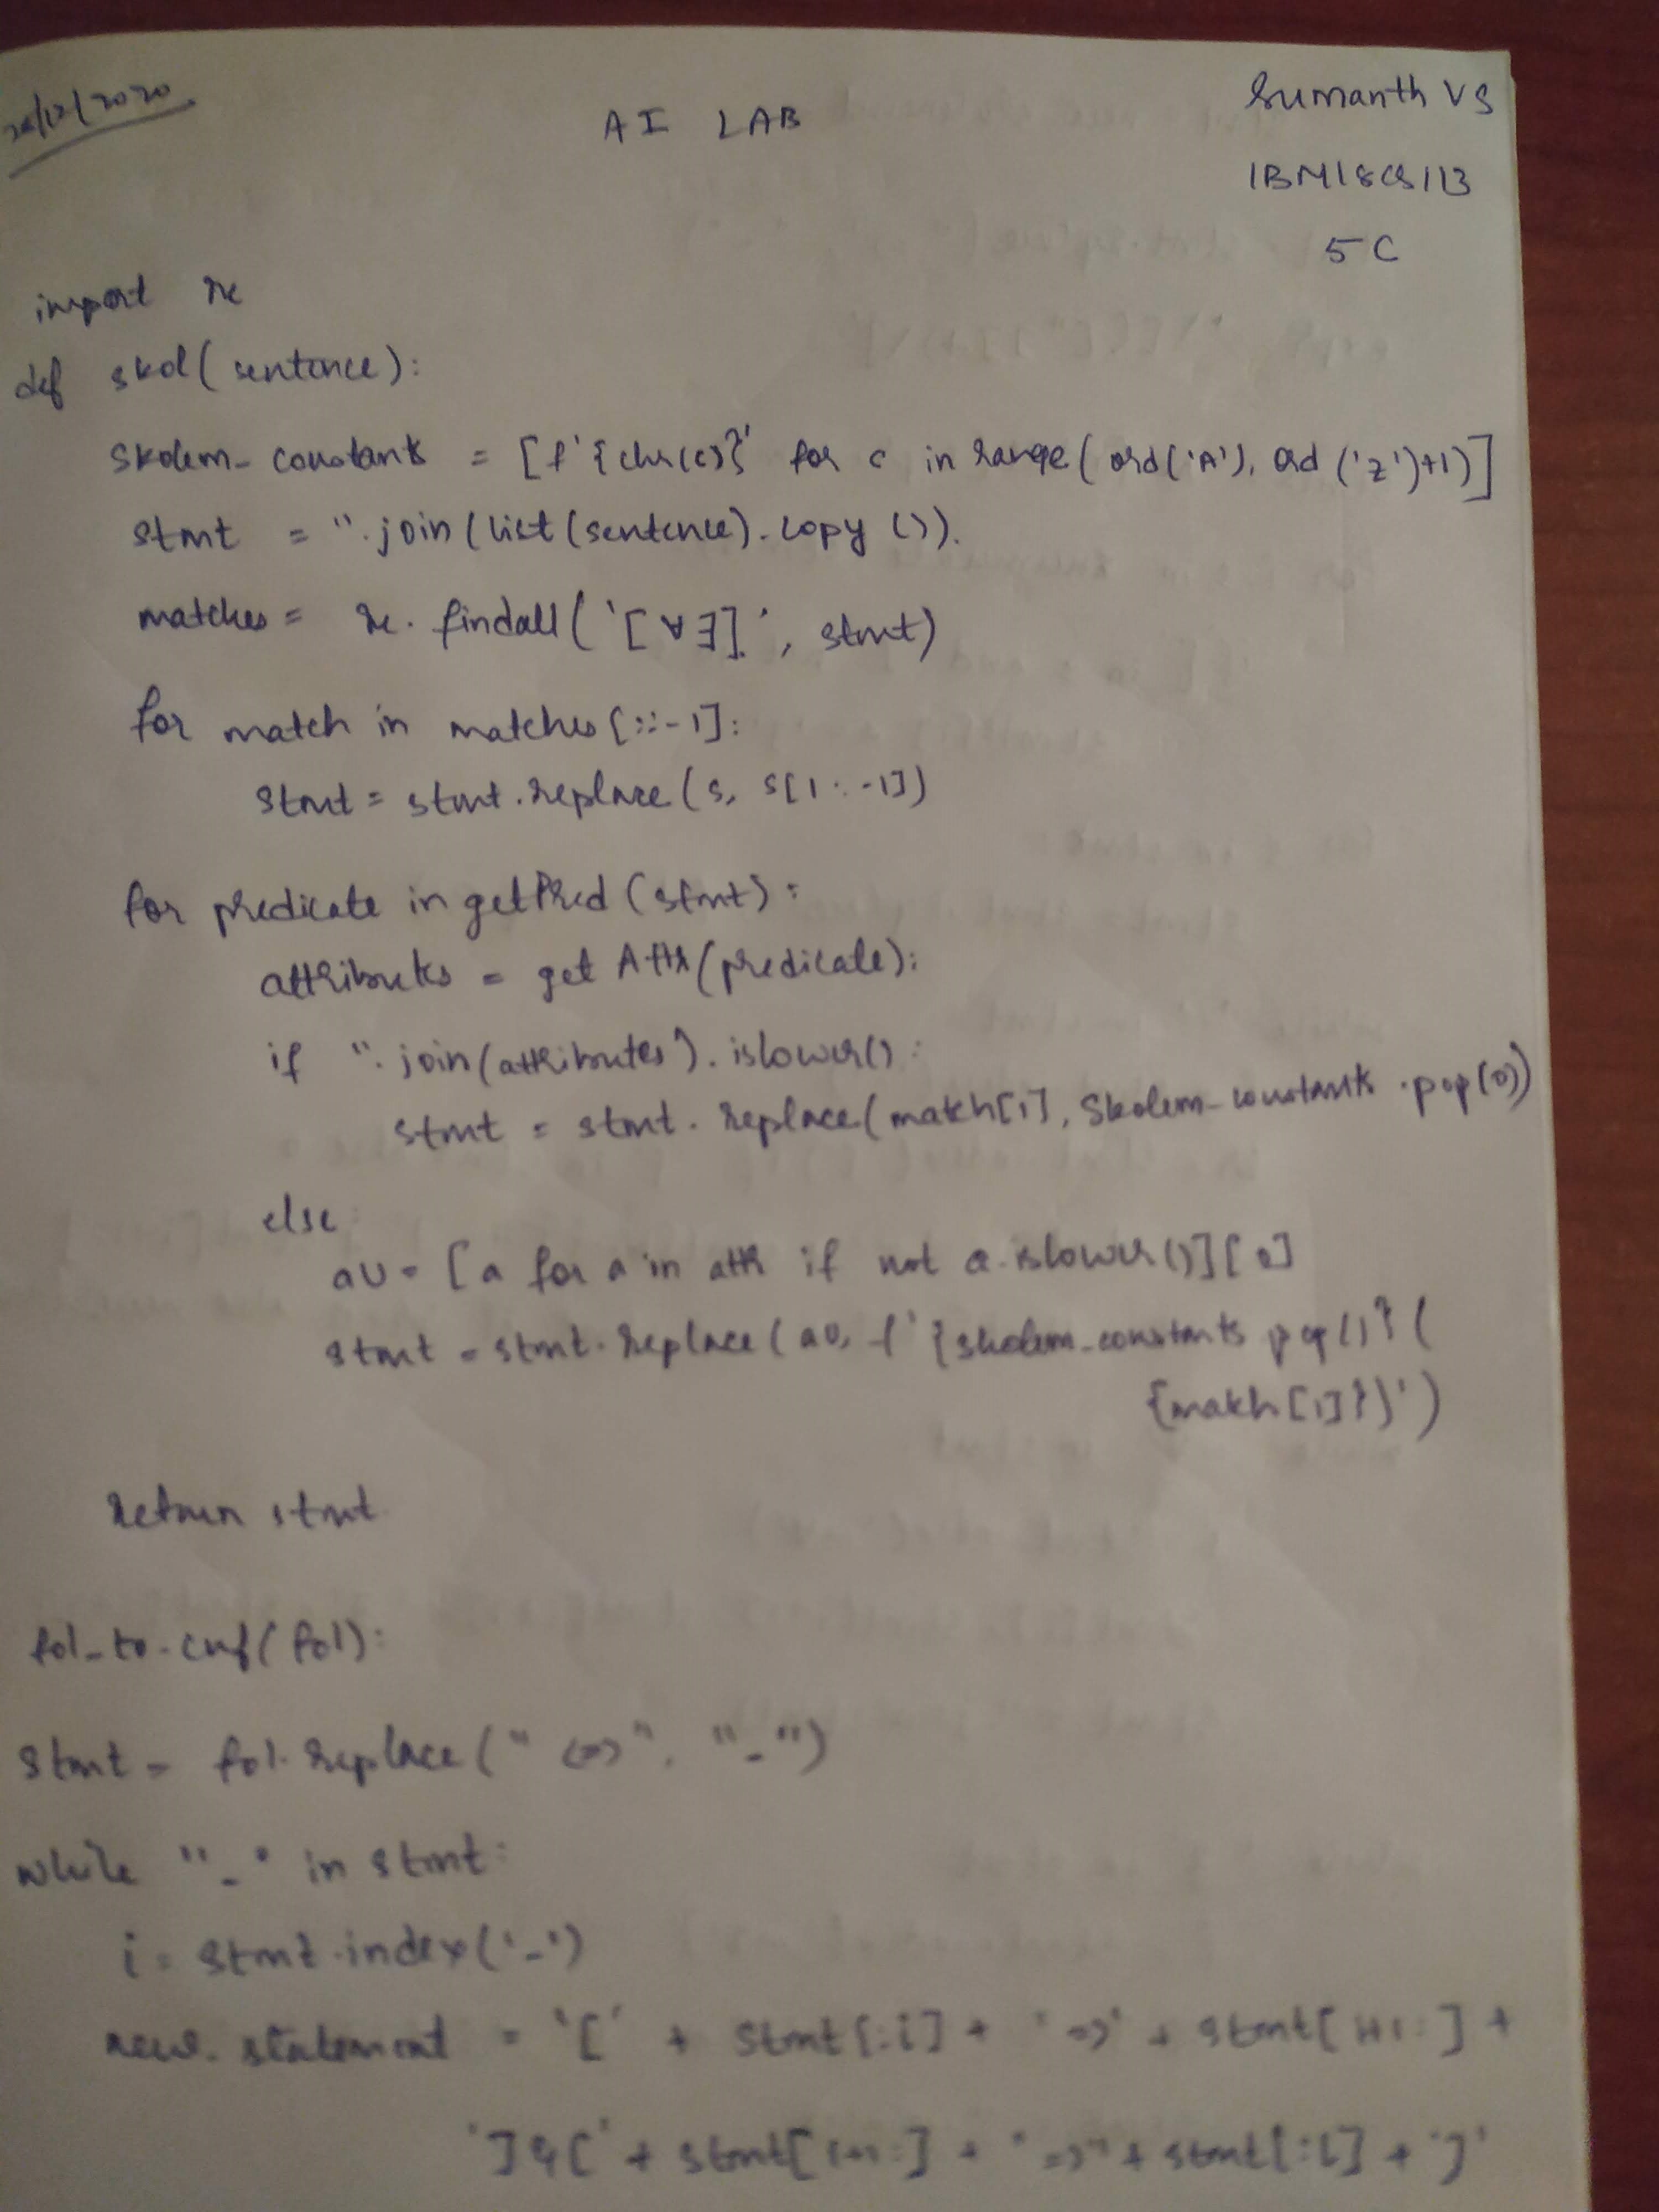 24/12/2020
AI LAB
Sumanth VS
1BM18CS113
5C
import re
def skol(sentence):
skolem_constants = [f'{chr(c)}' for c in range(ord('A'), ord('z')+1)]
stmt = ''.join(list(sentence).copy()).
matches = re.findall('[∀∃].', stmt)
for match in matches[::-1]:
stmt = stmt.replace(s, s[1:-1])
for predicate in getPred(stmt):
attributes = getAttr(predicate):
if ''.join(attributes).islower():
stmt = stmt.replace(match[1], Skolem_constants.pop(0))
else
aU = [a for a in attr if not a.islower()][0]
stmt = stmt.replace(aU, f'{skolem_constants.pop()}(
{match[1]})')
return stmt
fol_to_cnf(fol):
stmt = fol.replace("<=>", "_")
while "_" in stmt:
i = stmt.index('_')
new_statement = '[' + stmt[:i] + '=>' + stmt[i+1:] +
']&[' + stmt[i+1:] + '=>' + stmt[:i] + ']'